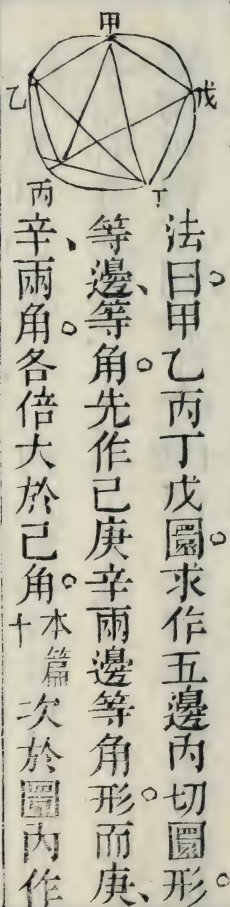 甲
乙
戊
丙
丁
法曰。甲乙丙丁戊圜。求作五邊內切圜形。
等邊、等角。先作己庚辛兩邊等角形。而庚、
辛、兩角。各倍大於己角。本篇十次於圜內作